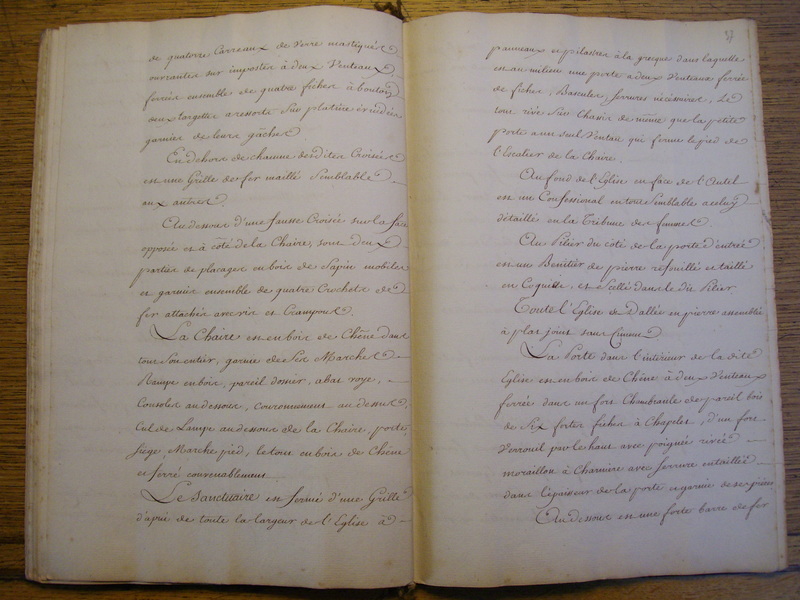 de quatorze Carreaux de Verre mastiqués
ouvrantes sur imposte à deux Venteaux,
ferrée ensemble de quatre fiches à boutons
deux targettes a ressorts sur platine évidées
garnies de leurs gâches
En dehors de chacune desdites Croisées
est une Grille de fer maillé Semblable
aux autres.
Au dessous d'une fausse Croisée sur la face
opposée et à côté de la Chaire, sont deux
parties de placages en bois de Sapin mobiles
et garnies ensemble de quatre Crochets de
fer attachés avec vis et Crampons.
La Chaire est en bois de Chêne dans
tout Son entier, garnie de Ses Marches
Rampe en bois, pareil dossier, abat voye,
Consoles au dessous, couronnement au dessus,
Cul de Lampe au dessous de la Chaire, porte,
siége, Marche pied, le tout en bois de Chêne
et ferré convenablement
Le Sanctuaire est fermé d'une Grille
d'apuie de toute la largeur de l'Eglise à
37
panneaux et pilastres à la grecque dans laquelle
est au milieu une porte à deux Venteaux ferrée
de fiches, Bascules, serrures nécessaires, Le
tout rivé Sur Chassis de même que la petite
porte a un seul Ventau qui ferme le pied de
l'Escalier de la Chaire.
Au fond de l'Eglise en face de l'Autel
est un Confessional en tout Semblable a celuy
détaillé en la Tribune des femmes.
Au Pilier du côté de la porte d'entrée
est un Benitier de pierre refouillé et taillé
en Coquille, et Scellé dans le dit Pilier
Toute l'Eglise est Dallée en pierre assemblée
à plat joint sans Ciment
La Porte dans l'intérieur de la dite
Eglise est en bois de Chêne à deux Venteaux
ferrée dans un fort Chambranle de pareil bois
de Six fortes fiches à Chapelet, d'un fort
Verrouil par le haut avec poignée rivée
moraillon à Charniere avec serrure entaillée
dans l'épaisseur de la porte et garnie de ses pièces
Au dessous est une forte barre de fer